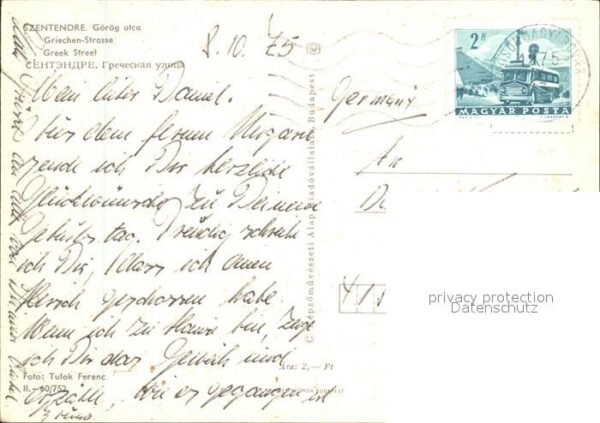 SZENTENDRE. Görög utca
Griechen-Strasse
Greek Street
СЕНТЭНДРЕ. Греческая улица
8.10.75
Mein lieber Daniel.
Aus dem fernen Ungarn
sende ich Dir herzliche
Glückwünsche zu Deinem
Geburtstag. Freudig schreib
ich Dir, dass ich einen
Hirsch geschossen habe.
Wenn ich zu Hause bin, zeige
ich Dir das Geweih und
erzähle, wie es gegangen ist
Foto: Tulok Ferenc
II.-60/752
Képzőművészeti Alap Kiadóvállalata, Budapest
Ára: 2,- Ft
2 Ft
MAGYAR POSTA
Germany
An
privacy protection
Datenschutz